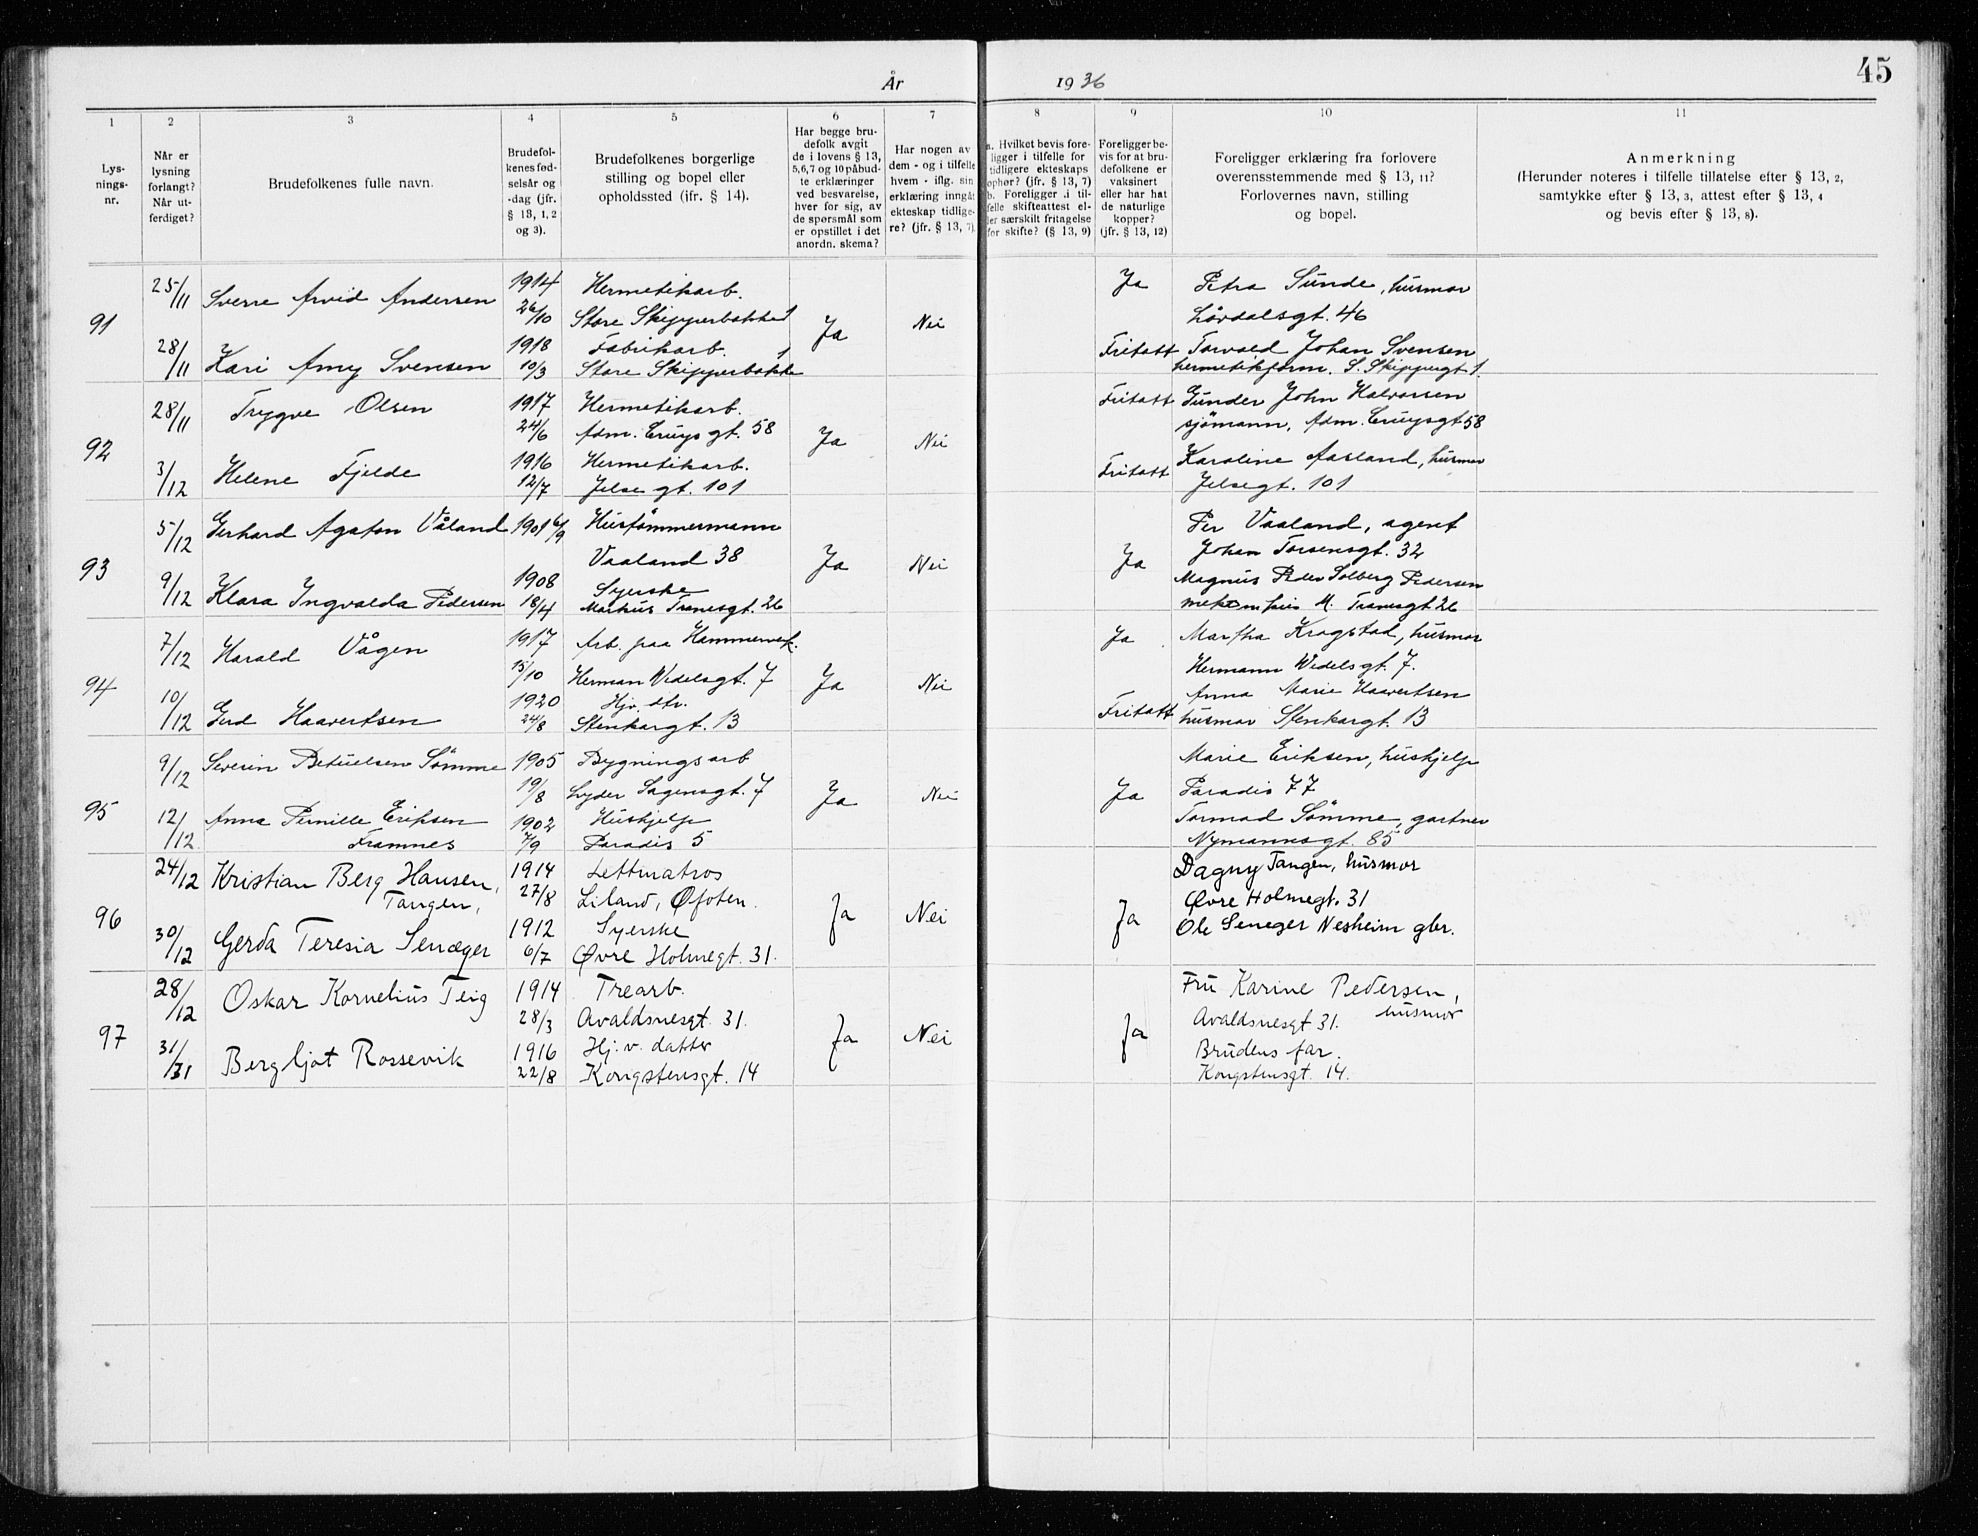 År 1936
45
1 2 3 4 5 6 7 8 9 10 11
Lys-
nings-
nr.
Når er
lysning
forlangt?
Når ut-
ferdiget?
Brudefolkenes fulle navn.
Brudefol-
kenes fød-
selsår og
-dag (jfr.
§ 13, 1, 2
og 3).
Brudefolkenes borgerlige
stilling og bopel eller
opholdssted (ifr. § 14).
Har begge bru-
defolk avgit
de i lovens § 13,
5,6,7 og 10 påbud-
te erklæringer
ved besvarelse,
hver for sig, av
de spørsmål som
er opstillet i det
anordn. skema?
Har nogen av
dem - og i tilfelle
hvem - iflg. sin
erklæring inngåt
ekteskap tidlige-
re? (jfr. § 13, 7)
a. Hvilket bevis fore-
ligger i tilfelle for
tidligere ekteskaps
ophør? (jfr. § 13, 7)
b. Foreligger i til-
felle skifteattest el-
ler særskilt fritagelse
for skifte? (§ 13, 9)
Foreligger be-
vis for at bru-
defolkene er
vaksinert
eller har hat
de naturlige
kopper?
(jfr. § 13, 12)
Foreligger erklæring fra forlovere
overensstemmende med § 13, 11?
Forlovernes navn, stilling
og bopel.
Anmerkning
(Herunder noteres i tilfelle tillatelse efter § 13, 2,
samtykke efter § 13, 3, attest efter § 13, 4
og bevis efter § 13, 8).
25/11 Sverre Arvid Andersen 1914 Hermetikarb. Ja Petra Sunde, husmor
26/10 Store Skipperbakke 1 Lårdalsgt. 46
91 Ja Nei
28/11 Kari Amy Svensen 1918 Fabrikarb. Fritatt Torvald Johan Svensen
10/3 Store Skipperbakke 1 hermetikform. S. Skippergt 1.
28/11 Trygve Olsen 1917 Hermetikarb. Fritatt Gunder John Halvorsen
24/6 Adm. Cruysgt. 58 sjömann, Adm. Cruysgt 58
92 Ja Nei
3/12 Helene Fjelde 1916 Hermetikarb. Fritatt Karoline Aasland, husmor
12/7 Jelsegt. 101 Jelsegt. 101
5/12 Gerhard Agaton Våland 1901 6/9 Hustömmermann Per Vaaland, agent
Vaaland 38 Johan Torsensgt. 32
93 Ja Nei Ja
9/12 Klara Ingvalda Pedersen 1908 Syerske Magnus Peder Solberg Pedersen
18/4 Markus Tranesgt. 26 M. Tranesgt 26
7/12 Harald Vågen 1917 Arb. paa Hammerverk. Ja Martha Krogstad, husmor
15/10 Herman Wedelsgt. 7 Hermann Wedelsgt. 7.
94 Ja Nei
10/12 Gerd Haavertsen 1920 Hjv. dtr. Fritatt Anna Marie Haavertsen
24/8 Stenkargt. 13 husmor Stenkargt. 13
9/12 Severin Betuelsen Sömme 1905 Bygningsarb Marie Eriksen, hushjelp
19/8 Lyder Sagensgt. 7 Paradis 77
95 Ja Nei Ja
12/12 Anna Pernille Eriksen 1902 Hushjelp Tormod Sömme, gartner
Framnes 7/9 Paradis 5 Nymannsgt. 85
24/12 Kristian Berg Hansen, 1914 Lettmatros Dagny Tangen, husmor
Tangen, 27/8 Liland, Øfoten. Øvre Holmegt. 31
96 Ja Nei Ja
30/12 Gerda Teresia Senæger 1912 Syerske Ole Seneger Nesheim gbr.
6/7 Øvre Holmegt. 31.
28/12 Oskar Kornelius Teig 1914 Trearb. Fru Karine Pedersen,
28/3 Avaldsnesgt. 31. Avaldsnesgt 31. husmor
97 Ja Nei Ja
31/31 Bergljot Rossevik 1916 Hj. v. datter Brudens far.
22/8 Kongstensgt. 14 Kongstensgt. 14.